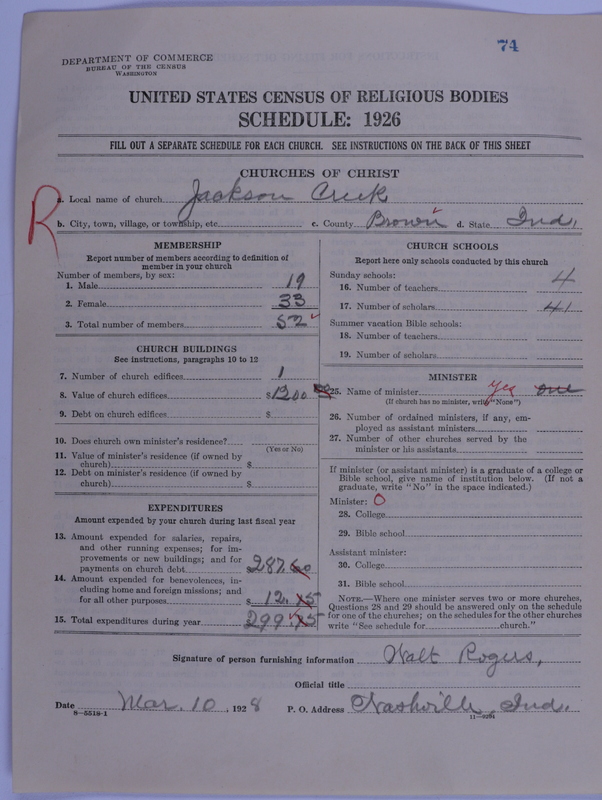 74
DEPARTMENT OF COMMERCE
BUREAU OF THE CENSUS
WASHINGTON
UNITED STATES CENSUS OF RELIGIOUS BODIES
SCHEDULE: 1926
FILL OUT A SEPARATE SCHEDULE FOR EACH CHURCH. SEE INSTRUCTIONS ON THE BACK OF THIS SHEET
CHURCHES OF CHRIST
R
a. Local name of church Jackson Creek
b. City, town, village, or township, etc. c. County Brown d. State Ind.
MEMBERSHIP
Report number of members according to definition of
member in your church
Number of members, by sex:
1. Male 19
2. Female 33
3. Total number of members 52
CHURCH BUILDINGS
See instructions, paragraphs 10 to 12
7. Number of church edifices 1
8. Value of church edifices $1200
9. Debt on church edifices $
10. Does church own minister's residence?
(Yes or No)
11. Value of minister's residence (if owned by
church) $
12. Debt on minister's residence (if owned by
church) $
EXPENDITURES
Amount expended by your church during last fiscal year
13. Amount expended for salaries, repairs,
and other running expenses; for im-
provements or new buildings; and for
payments on church debt $287.60
14. Amount expended for benevolences, in-
cluding home and foreign missions; and
for all other purposes $12.15
15. Total expenditures during year $299.75
CHURCH SCHOOLS
Report here only schools conducted by this church
Sunday schools:
16. Number of teachers 4
17. Number of scholars 41
Summer vacation Bible schools:
18. Number of teachers
19. Number of scholars
MINISTER
25. Name of minister yes one
(If church has no minister, write "None")
26. Number of ordained ministers, if any, em-
ployed as assistant ministers
27. Number of other churches served by the
minister or his assistants
If minister (or assistant minister) is a graduate of a college or
Bible school, give name of institution below. (If not a
graduate, write "No" in the space indicated.)
Minister: O
28. College
29. Bible school
Assistant minister:
30. College
31. Bible school
NOTE.—Where one minister serves two or more churches,
Questions 28 and 29 should be answered only on the schedule
for one of the churches; on the schedules for the other churches
write "See schedule for church."
Signature of person furnishing information Walt Rogers,
Official title
Date Mar. 10, 1928 P. O. Address Nashville, Ind.
8—5518-1 11—9204